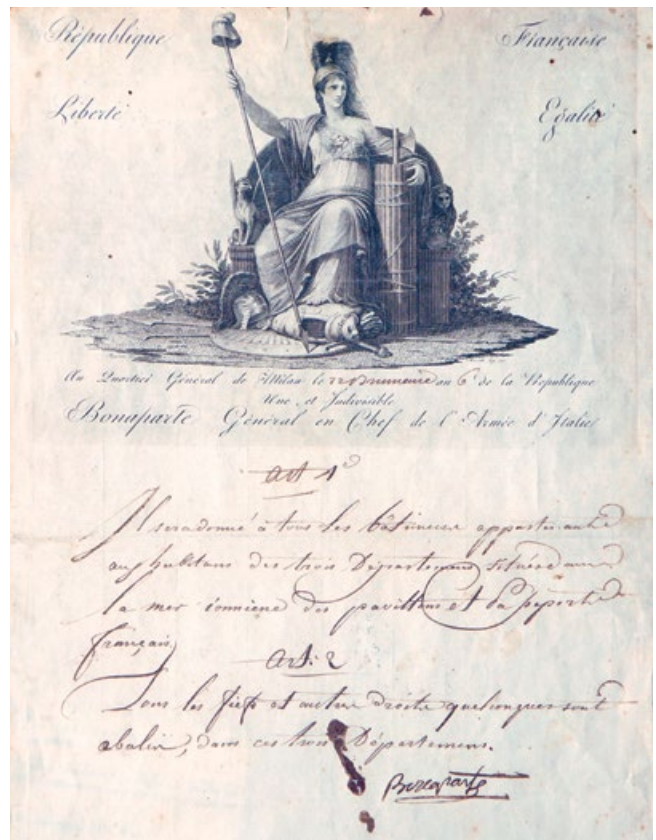 République Française
Liberté Egalité
Au Quartier Général de Milan le brumaire an 6e de la République
Une et Indivisible
Bonaparte Général en Chef de l'Armée d'Italie
art 1er
Il sera donné à tous les bâtiments appartenants
aux habitans des trois Départemens situés dans
la mer ionniene des pavillons et passeports
français
art. 2
Tous les fiefs et autres droits quelconques sont
abolis, dans ces trois Départemens.
Bonaparte